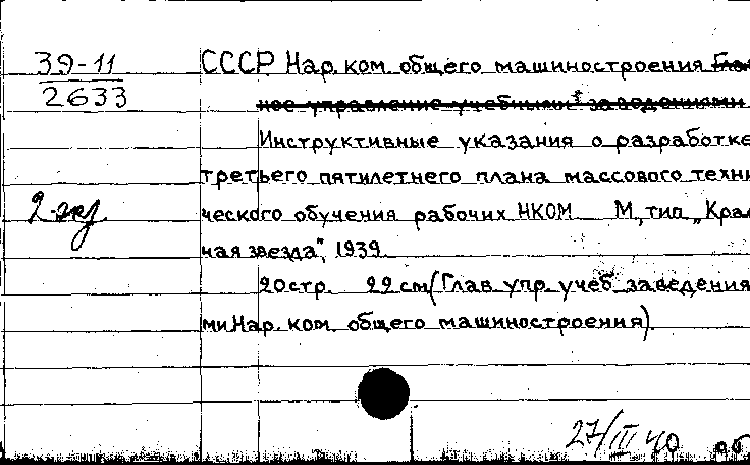 39-11
2633
2 экз
СССР Нар. ком. общего машиностроения Глав
ное управление учебными заведениями
Инструктивные указания о разработке
третьего пятилетнего плана массового техни
ческого обучения рабочих НКОМ М, тип. „Крас
ная звезда", 1939.
20 стр. 22 см (Глав. упр. учеб. заведения
ми Нар. ком. общего машиностроения)
27/III 40